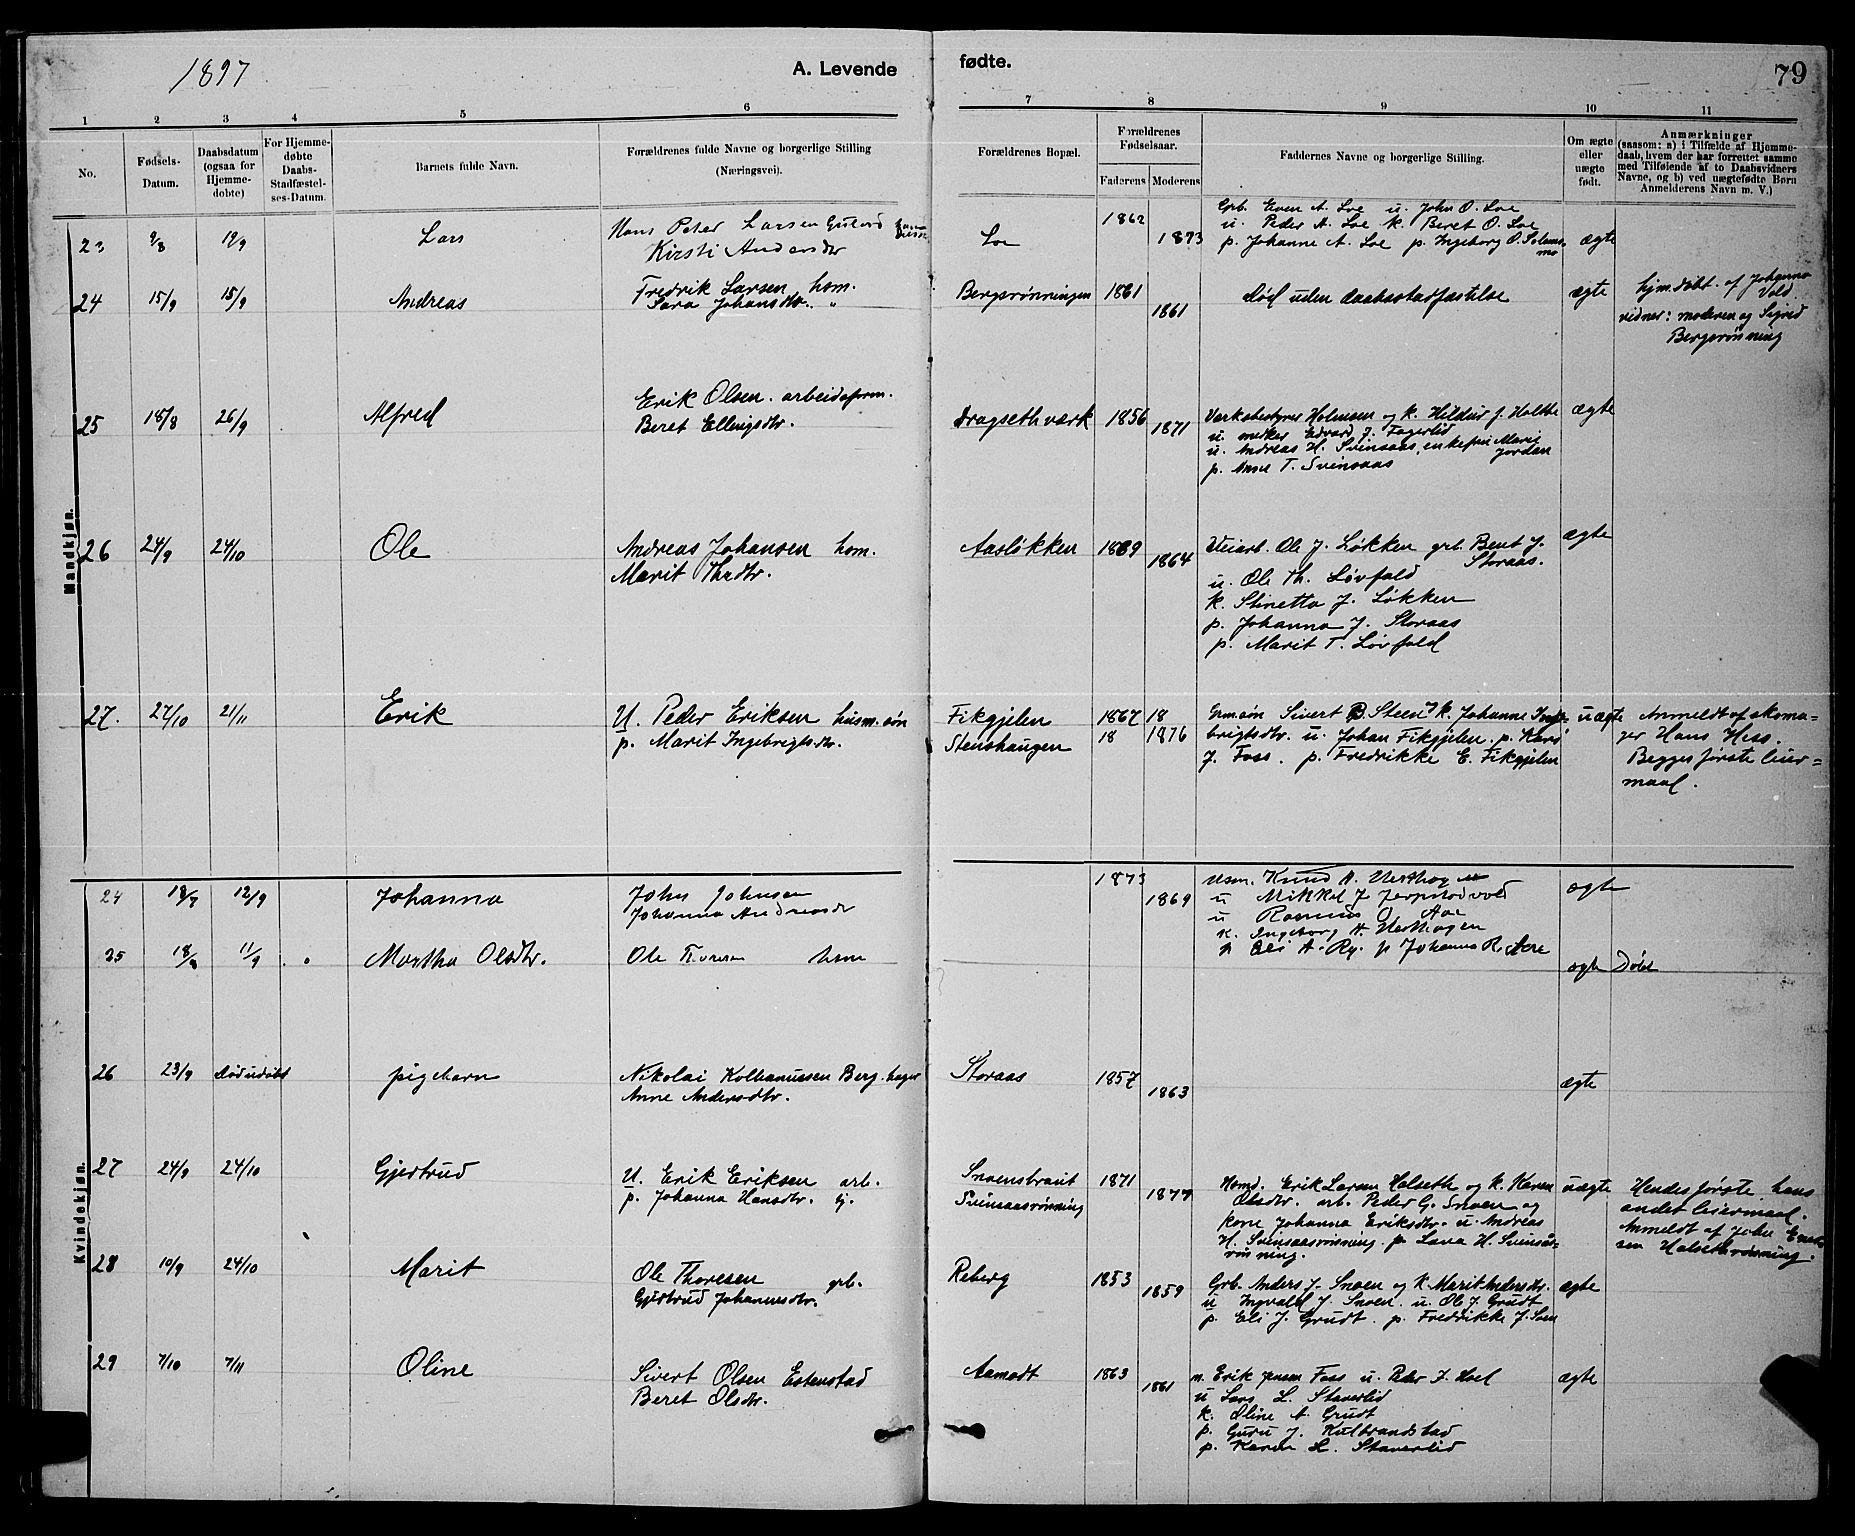 1897
A. Levende
fødte.
79
1 2 3 4 5 6 7 8 9 10 11
No.
Fødsels-Datum.
Daabsdatum (ogsaa for Hjemmedøbte)
For Hjemmedøbte Daabs-Stadfæstelses-Datum.
Barnets fulde Navn.
Forældrenes fulde Navne og borgerlige Stilling
(Næringsvei).
Forældrenes Bopæl.
Forældrenes Fødselsaar.
Faderens Moderens
Faddernes Navne og borgerlige Stilling.
Om ægte eller uægte født.
Anmærkninger
(saasom: a) i Tilfælde af Hjemmedaab, hvem der har forrettet samme med Tilføiende af to Daabsvidners Navne, og b) ved uægtefødte Børn Anmelderens Navn m. V.)
Mandkjøn.
23 9/8 19/9 Lars
Hans Peter Larsen
Kirsti Andersdtr
Loe 1862 1873
Grb. Even A. Loe u. John O. Loe
u. Peder A. Loe k. Beret O. Loe
p. Johanne A. Loe p. Ingeborg O. Solems-
mo
ægte
24 15/9 15/9 Andreas
Fredrik Larsen, hom.
Sara Johansdtr. "
Bergsrønningen 1861 1861
død uden daabsstadfæstelse
ægte
hjm. døbt. af Johanna
Vold.
vidner: moderen og Sigrid
Bergsrønning
25 18/8 26/9 Alfred
Erik Olsen. arbeidsform.
Beret Ellingsdtr.
Dragseth værk 1856 1871
Verksbestyrer Holmsen og k. Hildur J. Holthe
u. snedker Edvard J. Fagerlid
u. Andreas H. Svinsaas, enkefru Marie
Jordan
p. Anne T. Svinsaas
ægte
26 24/9 24/10 Ole
Andreas Johansen hom.
Marit Thrdtr.
Aasløkken 1869 1864
Veiarb. Ole J. Løkken grb. Bent J.
Storaas.
u. Ole Th. Løvfald
k. Stinetta J. Løkken
p. Johanna J. Storaas
p. Marit T. Løvfald
ægte
27. 27/10 21/11 Erik
U. Peder Eriksen husm. søn
p. Marit Ingebrigtsdtr.
Fikgjelen 1867 18
Stenshaugen 18 1876
Grmsøn Sivert B. Steen, k. Johanne Inge-
brigtsdtr. u. Johan Fikgjelen. p. Kari
J. Foss. p. Fredrikke E. Fikgjelen
uægte
Anmeldt af skoma-
ger Hans Hess.
Begges første leier=
maal.
Kvindekjøn.
24 18/7 12/9 Johanna
John Johnsen
Johanna Andreasdr
1873 1869
Knud A.
u Mikkel J
u Rasmus O Aae
k. Ingeborg A.
p Eli A. Ry. p Johanna R. Aae
ægte
25 18/8 11/9 Martha Olsdtr.
Ole Toresen hom
ægte Død
26 23/9 Død udøbt pigebarn
Nikolai Kolbanussen Berg. hager
Anne Andersdtr.
Storaas 1857 1863
ægte
27 24/9 24/10 Gjertrud
U. Erik Eriksen arb.
p. Johanna Hansdtr. tj.
Snoenstrøit 1871
Svinsaasrønning 1877
Homd. Erik Larsen Halseth og k. Karen
Olsdtr. arb. Peder G. Snoen og
kone Johanna Eriksdtr. u. Andreas
H. Svinsaasrønning. p. Lava H. Svinsås-
rønning.
uægte
Hendes første, hans
andet leiermaal.
Anmeldt af John Erik-
sen Halsethrønning.
28 10/9 24/10 Marit
Ole Thoresen grb.
Gjertrud Johannesdtr.
Reberg 1853 1859
Grb. Anders J. Snoen og k. Marit Andersdtr.
u Ingvald J. Snoen. u. Ole J. Grudt
p. Eli J. Grudt. p. Fredrikke J. Snen
ægte
29 7/10 7/11 Oline
Sivert Olsen Estenstad
Beret Olsdtr.
Aamodt 1863 1861
m. Erik Jensen Foss u. Peder J. Hoel
u Lars L. Staverlid
k. Oline A. Grudt
p. Guru J. Kulbrandstad
p. Karen L. Staverlid
ægte